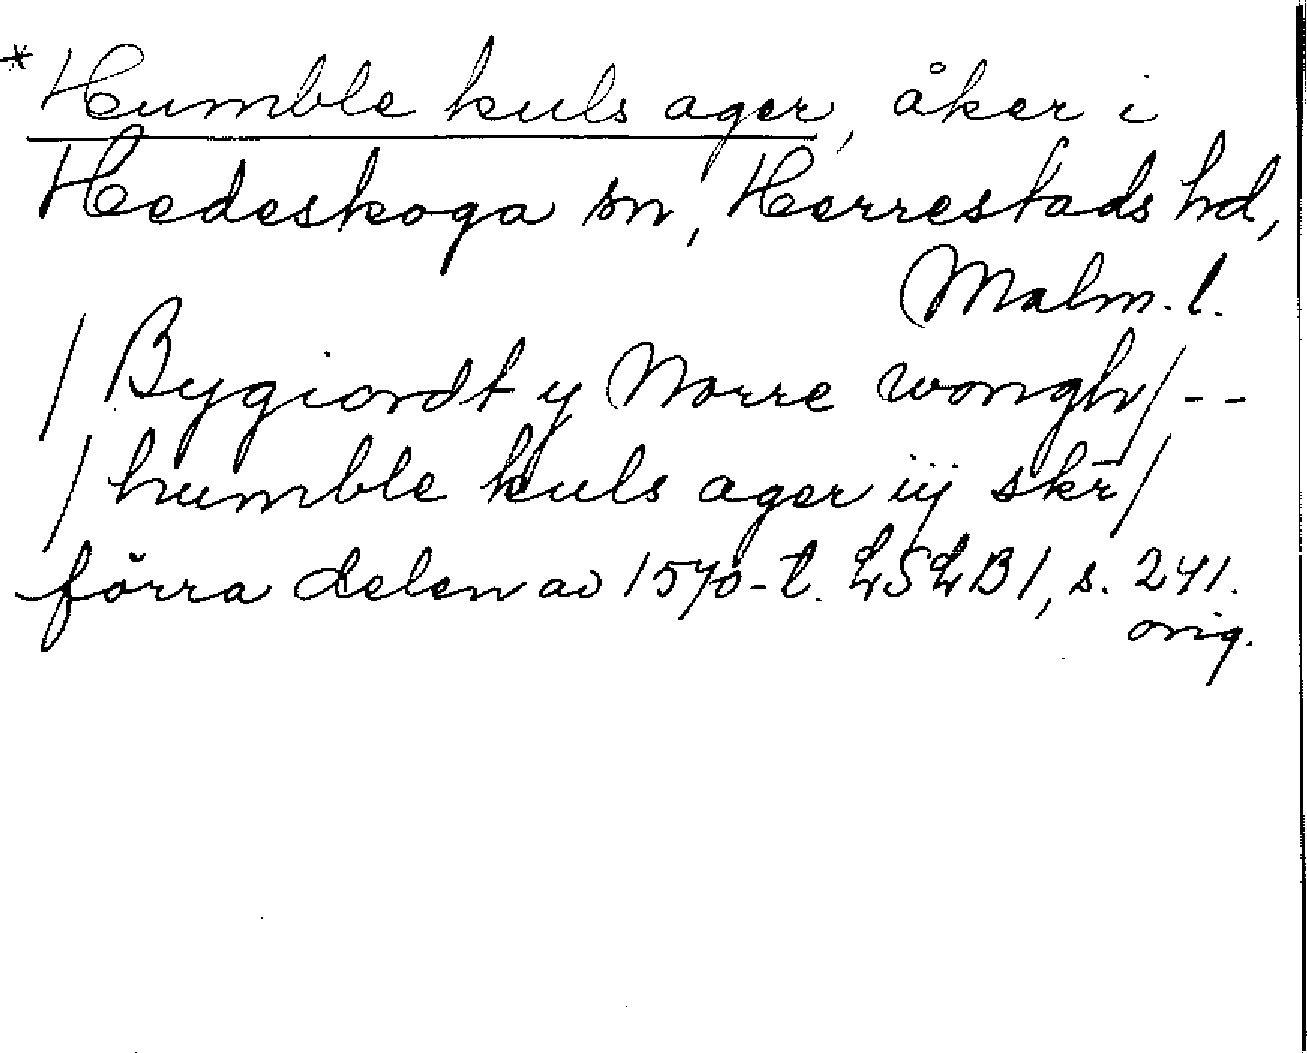 *Humble kuls ager, åker i
Hedeskoga sn, Herrestads hd,
Malm. l.
/ Bygiordt y Norre wongh / --
/ humble kuls ager iij skr̄ /
förra delen av 1570-t. LSLB1, s. 241.
orig.